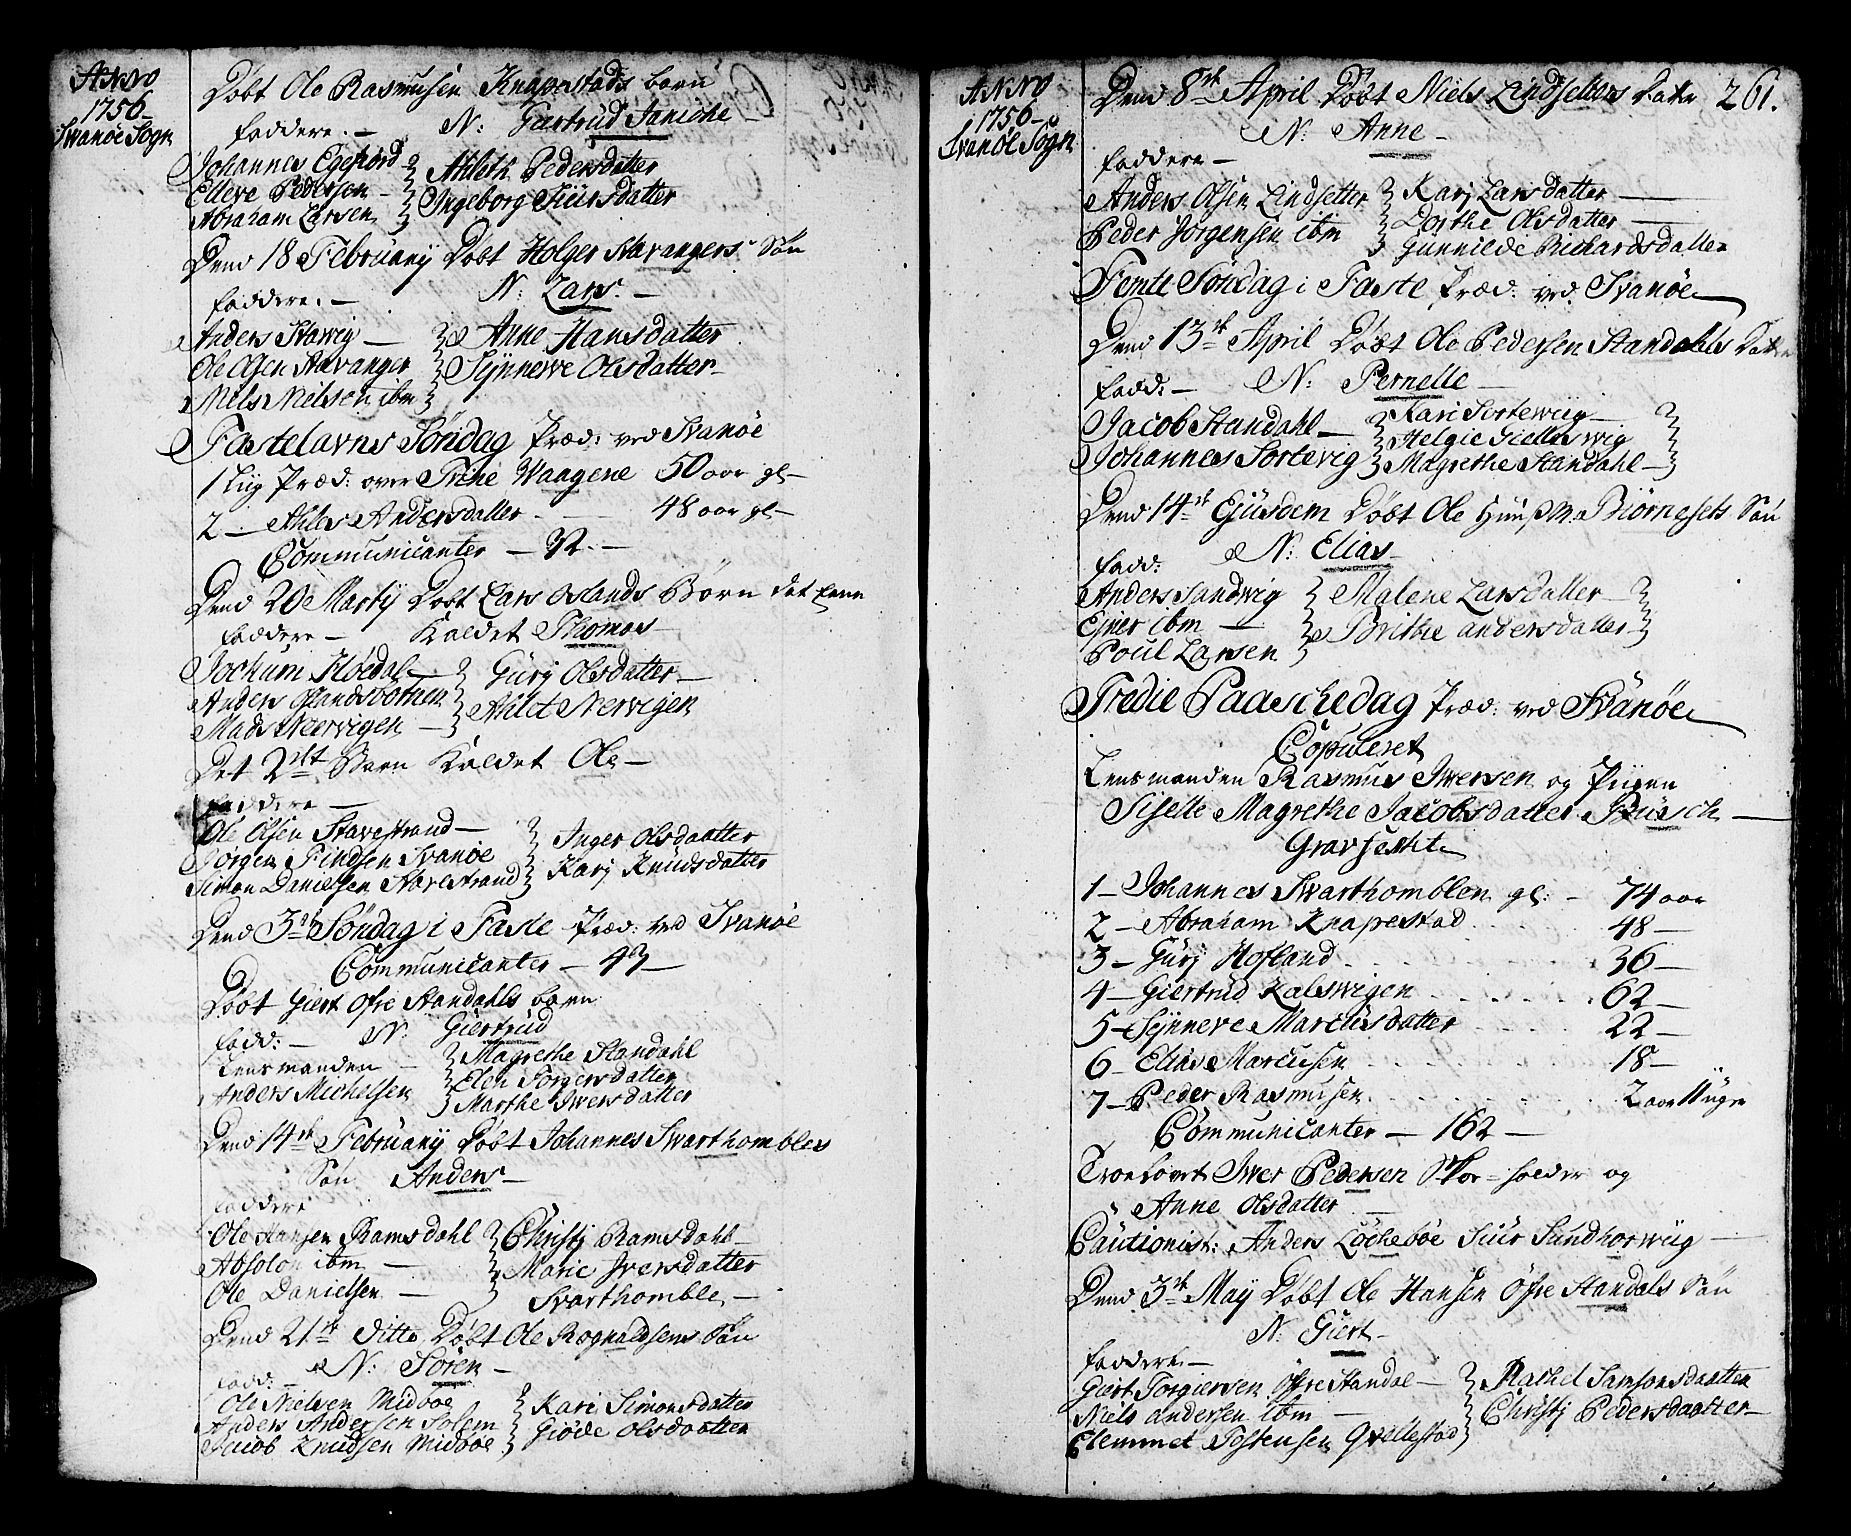 ANNO
1756
Svanöe Sogn
Döbt Ole Rasmusen Knapestads barn
N: Giertrud Janiche
faddere.
Johannes Egefiord Ahleth Pedersdatter
Elleve Pedersen Ingeborg Siursdatter
Abraham Larsen
Dend 18 February Döbt Holger Stavangers Sön
N: Lars.
faddere.
Anders Stavig Anne Hansdatter
Ole Olsen Stavanger Synnewe Olsdatter
Niels Nielsen ibm
Fastelavns Söndag Præd: ved Svanöe
1 Lig Præd: over Trine Waagene 50 aar gl
2 Ahles Andersdatter 48 aar gl
Communicanter 92.
Dend 20 Martij Döbt Lars Oslands Börn det Eene
faddere Kaldet Thomas
Jochum Höedal Gurj Olsdatter
Anders Oslandsbotnen Ahlet Nervigen
Mads Neervigen
Det 2det Barn Kaldet Ole
faddere
Ole Olsen Stavestrand Inger Olsdaatter
Jörgen Findsen Svanöe Karj Knudsdatter
Simon Danielsen Stavestrand
Dend 3de Söndag i Faste Præd: ved Svanöe
Communicanter 43
Döbt Giert Öfre Standahls barn
fadd: N: Giertrud
Lensmanden Magrethe Standahl
Anders Michelsen Elen Torgersdatter
Marthe Iwersdatter
Dend 14de February Döbt Johannes Svarthombles
Sön Anders
faddere
Ole Hansen Ramsdahl Christj Ramsdahl
Absolon ibm Marie Iversdatter
Ole Danielsen Svarthomble
Dend 21de ditto Döbt Ole Rognaldsens Sön
N: Sören
fadd:
Ole Nielsen Midböe Kari Simonsdatter
Anders Andersen Solem Giöde Olsdaatter
Jacob Knudsen Midböe
ANNO
1756
Svanöe Sogn
261.
Dend 8de April Döbt Niels Lindsetters Datter
N: Anne
faddere
Anders Olsen Lindsetter Karj Larsdatter
Peder Jörgensen ibm Dorthe Olsdatter
Gunnilde Richardsdatter
Femte Söndag i Faste Præd: ved Svanöe
Dend 13de April Döbt Ole Pedersen Standahls Datter
fadd: N: Pernelle
Jacob Standahl Kari Sortewiig
Johannes Sortevig Helgie
Magrethe Standahl
Dend 14de Ejusdem Döbt Ole Biörnesets Sön
fadd: N: Elias
Anders Sandwig Malene Larsdatter
Ejner ibm Brithe andersdatter
Poul Larsen
Tredie Paaschedag Præd: ved Svanöe
Copuleret
Lensmanden Rasmus Iwersen og Piigen
Siselle Magrethe Jacobsdatter Büsch
Gravfæstet
1 Johannes Svarthomblen gl: 74 aar
2 Abraham Knapestad 48
3 Gurj Hofland 36
4 Giertrud Kalswigen 62
5 Synneve Marcusdatter 22
6 Elias Marcusen 18
7 Peder Rasmusen 2 aar 11 uger
Communicanter 162
Troelovet Iwer Pedersen og
Anne Olsdatter
Cautionist: Anders Löcheböe Siur Sundhorwiig
Dend 3de May Döbt Ole Hansen Öfre Standals Sön
N: Giert
faddere
Giert Torgiersen Öfre Standal Rathel Samsonsdaatter
Niels andersen ibm Christj Pedersdaatter
Clemmet Tostensen Qvellestad